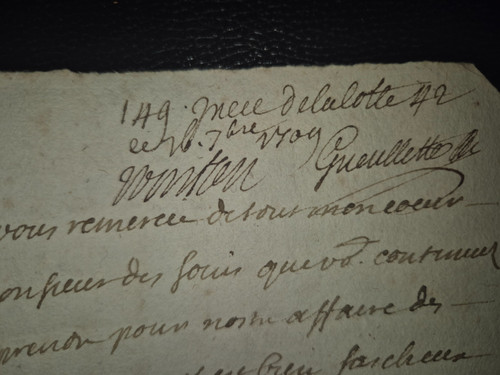 149. Mere delalotte 42
ce 26. 7bre 1709
Gueullette
vous remercie de tout mon coeur
monsieur des soins que vo. continuez
prendre pour nostre affaire des
bien fascheux